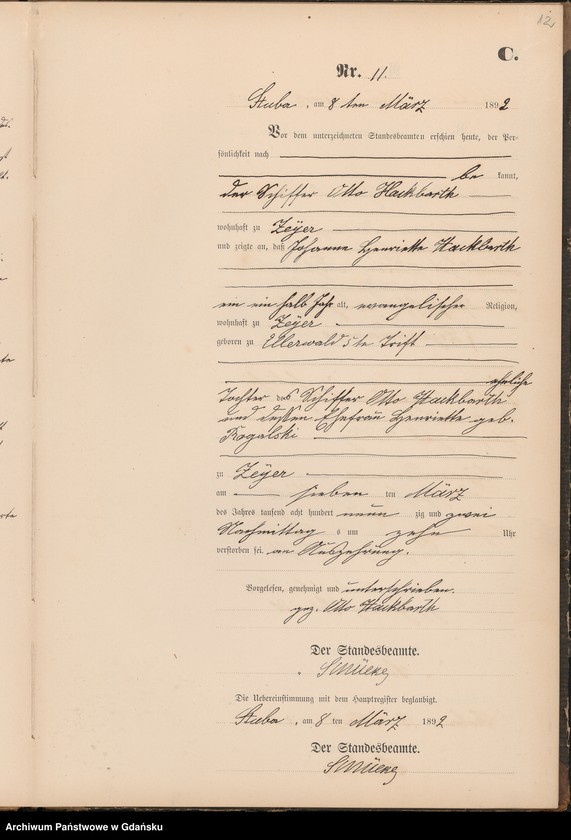 12.
C.
Nr. 11.
Stuba, am 8 ten März 1892
Vor dem unterzeichneten Standesbeamten erschien heute, der Per-
sönlichkeit nach
be kannt,
der Schiffer Otto Hackbarth
wohnhaft zu Zeÿer
und zeigte an, daß Johanne Henriette Hackbarth
ein ein halb Jahr alt, evangelischer Religion,
wohnhaft zu Zeÿer
geboren zu Ellerwald 5te Trift
eheliche
Tochter des Schiffer Otto Hackbarth
und dessen Ehefrau Henriette geb.
Rogalski
zu Zeÿer
am sieben ten März
des Jahres tausend acht hundert neun zig und zwei
Nachmittag s um zehn Uhr
verstorben sei. an Auszehrung.
Vorgelesen, genehmigt und unterschrieben.
gez. Otto Hackbarth
Der Standesbeamte.
Die Uebereinstimmung mit dem Hauptregister beglaubigt.
Stuba, am 8 ten März 1892
Der Standesbeamte.
Archiwum Państwowe w Gdańsku